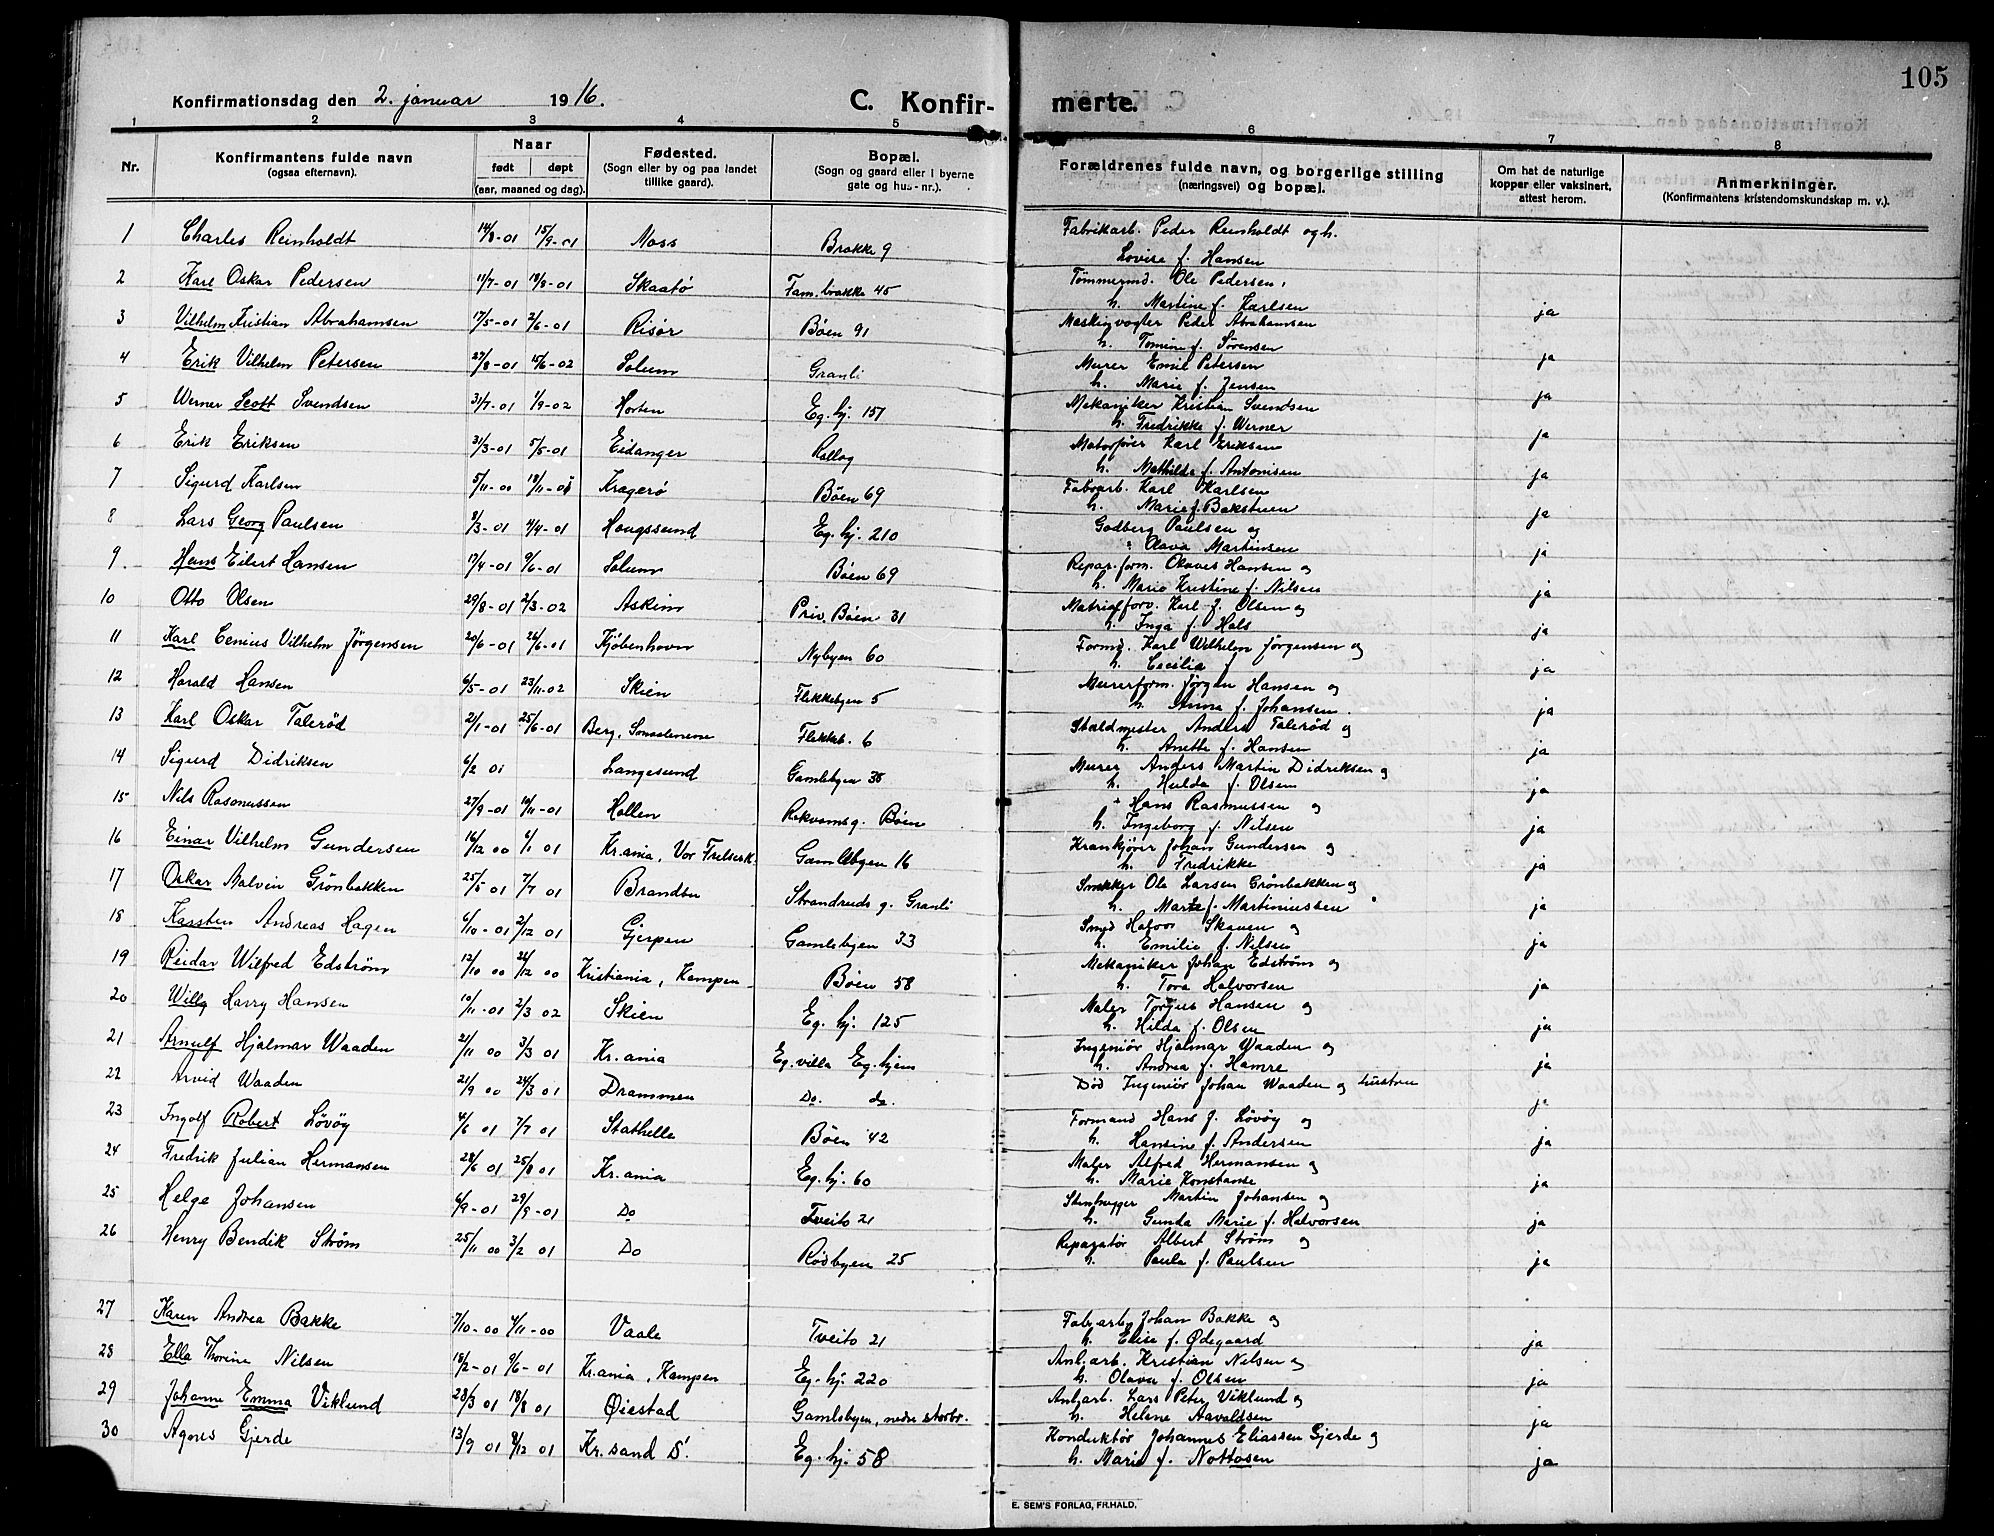 105
Konfirmationsdag den 2. januar 1916.
C. Konfir- merte.
1 2 3 4 5 6 7 8
Nr. Konfirmantens fulde navn (ogsaa efternavn). Naar født døpt (aar, maaned og dag). Fødested. (Sogn eller by og paa landet tillike gaard). Bopæl. (Sogn og gaard eller i byerne gate og hus-nr.). Forældrenes fulde navn, og borgerlige stilling (næringsvei) og bopæl. Om hat de naturlige kopper eller vaksinert, attest herom. Anmerkninger. (Konfirmantens kristendomskundskap m. v.).
1 Charles Reinholdt 14/8-01 15/9-01 Moss Brakke 9 Fabrikarb. Peder Reinholdt og h.
Lovise f. Hansen
2 Karl Oskar Pedersen 11/7-01 18/8-01 Skaatø Fam.brakke 45 Tømmermd. Ole Pedersen,
h. Martine f. Karlsen ja
3 Vilhelm Kristian Abrahamsen 17/5-01 2/6-01 Risør Bøen 91 Maskinvogter Peder Abrahamsen
h. Tomine f. Sørensen ja
4 Erik Vilhelm Petersen 27/8-01 15/6-02 Solum Granli Murer Emil Petersen
h. Marie f. Jensen ja
5 Werner Scott Svendsen 31/7-01 1/9-02 Horten Eg. hj. 157 Mekaniker Kristian Svendsen
h. Fredrikke f. Werner ja
6 Erik Eriksen 31/3-01 5/5-01 Eidanger Rollag Motorfører Karl Eriksen
h. Mathilde f. Antonisen ja
7 Sigurd Karlsen 5/11-00 18/11-00 Kragerø Bøen 69 Fabr.arb. Karl Karlsen
h. Marie f. Bakstuen ja
8 Lars Georg Paulsen 2/3-01 4/4-01 Hougssund Eg. hj. 210 Godberg Paulsen og
" Olava Martinsen ja
9 Hans Eilert Hansen 17/4-01 9/6-01 Solum Bøen 69 Repar.form. Olaves Hansen og
h. Marie Kristine f. Nilsen ja
10 Otto Olsen 29/8-01 2/3-02 Askim Priv. Bøen 31 Matrialforv. Karl J. Olsen og
h. Inga f. Hals ja
11 Karl Cenius Vilhelm Jörgensen 20/6-01 26/6-01 Kjøbenhavn Nybyen 60 Formd. Karl Wilhelm Jörgensen og
h. Cecilia f ja
12 Harald Hansen 6/5-01 23/11-02 Skien Flekkebyen 5 Murerform. Jörgen Hansen og
h. Anna f. Johansen. ja
13 Karl Oskar Taleröd 21/1-01 25/6-01 Berg, Smaalenene Flekkeb. 6 Staldmester Anders Taleröd og
h. Anette f. Hansen ja
14 Sigurd Didriksen 6/2 01 Langesund Gamlebyen 38 Murer Anders Martin Didriksen og
h. Hulda f. Olsen ja
15 Nils Rasmussen 27/9-01 10/11-01 Hollen Rekvamsg. Bøen " Hans Rasmussen og
h. Ingeborg f. Nilsen ja
16 Einar Vilhelm Gundersen 16/12 00 6/1 01 Kr.ania, Vor Frelserk. Gamlebyen 16 Krankjører Johan Gundersen og
h. Fredrikke ja
17 Oskar Malvin Grönbakken 25/5 01 7/7 01 Brandbu Strandruds g. Granli Snekker Ole Larsen Grönbakken og
h. Marte f. Martiniussen ja
18 Karsten Andreas Hagen 6/10-01 2/12 01 Gjerpen Gamlebyen 33 Smed Halvor Skauen og
h. Emilie f. Nilsen ja
19 Reidar Wilfred Edström 12/10 00 26/12 00 Kristiania, Kampen Bøen 58 Mekaniker Johan Edström og
h. Tora Halvorsen ja
20 Willy Harry Hansen 10/11-01 2/3 02 Skien Eg. hj. 125 Maler Torjus Hansen og
h. Hilda f. Olsen ja
21 Arnulf Hjalmar Waaden 21/11 00 3/3 01 Kr.ania Eg. villa Eg. hjem Ingeniör Hjalmar Waaden og
h. Andrea f. Hamre ja
22 Arvid Waaden 21/9 00 24/3 01 Drammen Do. do. Död Ingeniör Johan Waaden og hustru
ja
23 Ingolf Robert Lövöy 4/6 01 7/7 01 Stathelle Bøen 42 Formand Hans J. Lövöy og
h. Hansine f. Andersen ja
24 Fredrik Julian Hermansen 28/6 01 25/8 01 Kr.ania Eg. hj. 60 Maler Alfred Hermansen og
h. Marie Konstanse ja
25 Helge Johansen 6/9-01 29/9-01 Do Tveito 21 Stenhugger Martin Johansen og
h. Gunda Marie f. Halvorsen ja
26 Henry Bendik Ström 25/11 00 3/2 01 Do Rödbyen 25 Reparatör Albert Ström og
h. Paula f. Paulsen ja
27 Karen Andrea Bakke 7/10-00 4/11-00 Vaale Tveito 21 Fabr.arb. Johan Bakke og
h. Elise f. Ødegaard ja
28 Ella Thorine Nilsen 18/2-01 9/6-01 Kr.ania, Kampen Eg. hj. 220 Anl.arb. Kristian Nilsen og
h. Olava f. Olsen ja
29 Johanne Emma Viklund 23/3 01 18/8 01 Øiestad Gamlebyen, nedre storbr. Anl.arb. Lars Peter Viklund og
h. Helene Aavoldsen ja
30 Agnes Gjerde 13/9 01 8/12 01 Kr.sand S. Eg. hj. 58 Konduktör Johannes Eliassen Gjerde og
h. Marie f. Nottosen ja
E. SEM'S FORLAG, FR.HALD.